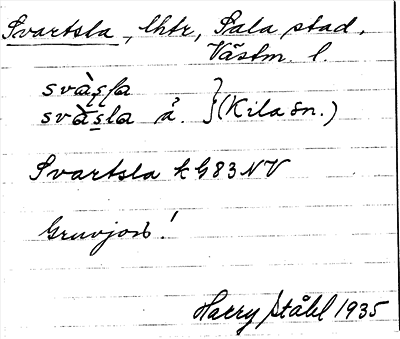 Svartsla, lhtr, Sala stad,
Västm. l.
svàṣḷa
svàṣla å. } (Kila sn.)
Svartsla k G83 NV
Gruvjord!
Harry Ståhl 1935